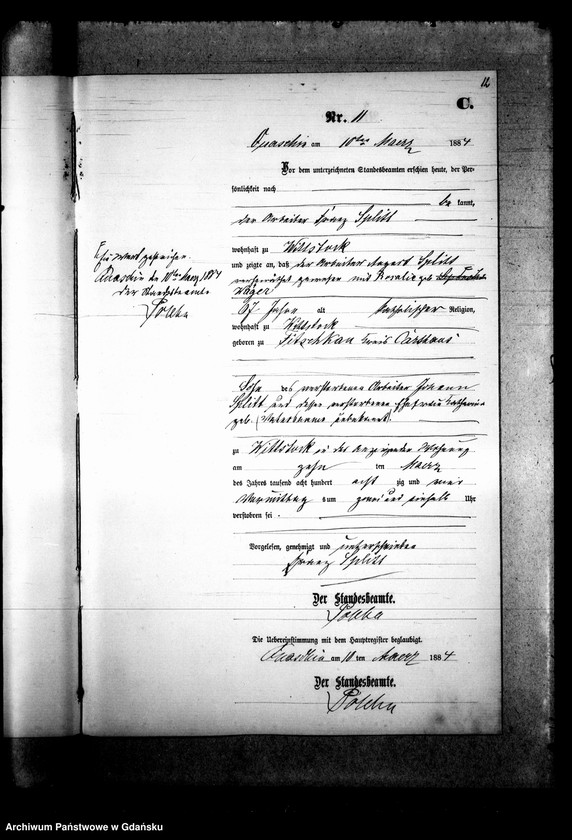 12
C.
Nr. 11
Quaschin am 10ten Maerz 1884
Vor dem unterzeichneten Standesbeamten erschien heute, der Per-
sönlichkeit nach
be kannt,
der Arbeiter Franz Splitt
wohnhaft zu Wittstock
und zeigte an, daß der Arbeiter August Splitt
verheirathet gewesen mit Rosalie geb.
67 Jahre alt katholischer Religion,
wohnhaft zu Wittstock
geboren zu Kreis Carthaus
Sohn des verstorbenen Arbeiter Johann
Splitt und dessen verstorbene Ehefrau Catharina
geb. (Vatersname unbekannt)
zu Wittstock in des Anzeigenden Wohnung
am zehn ten Maerz
des Jahres tausend acht hundert acht zig und vier
Vormittag um zwei und einhalb Uhr
verstorben sei.
Vorgelesen, genehmigt und unterschrieben
Franz Splitt
Der Standesbeamte.
Die Uebereinstimmung mit dem Hauptregister beglaubigt.
Quaschin am 10 ten Maerz 1884
Der Standesbeamte.
Quaschin den 10ten Maerz 1884
Der Standesbeamte
Archiwum Państwowe w Gdańsku